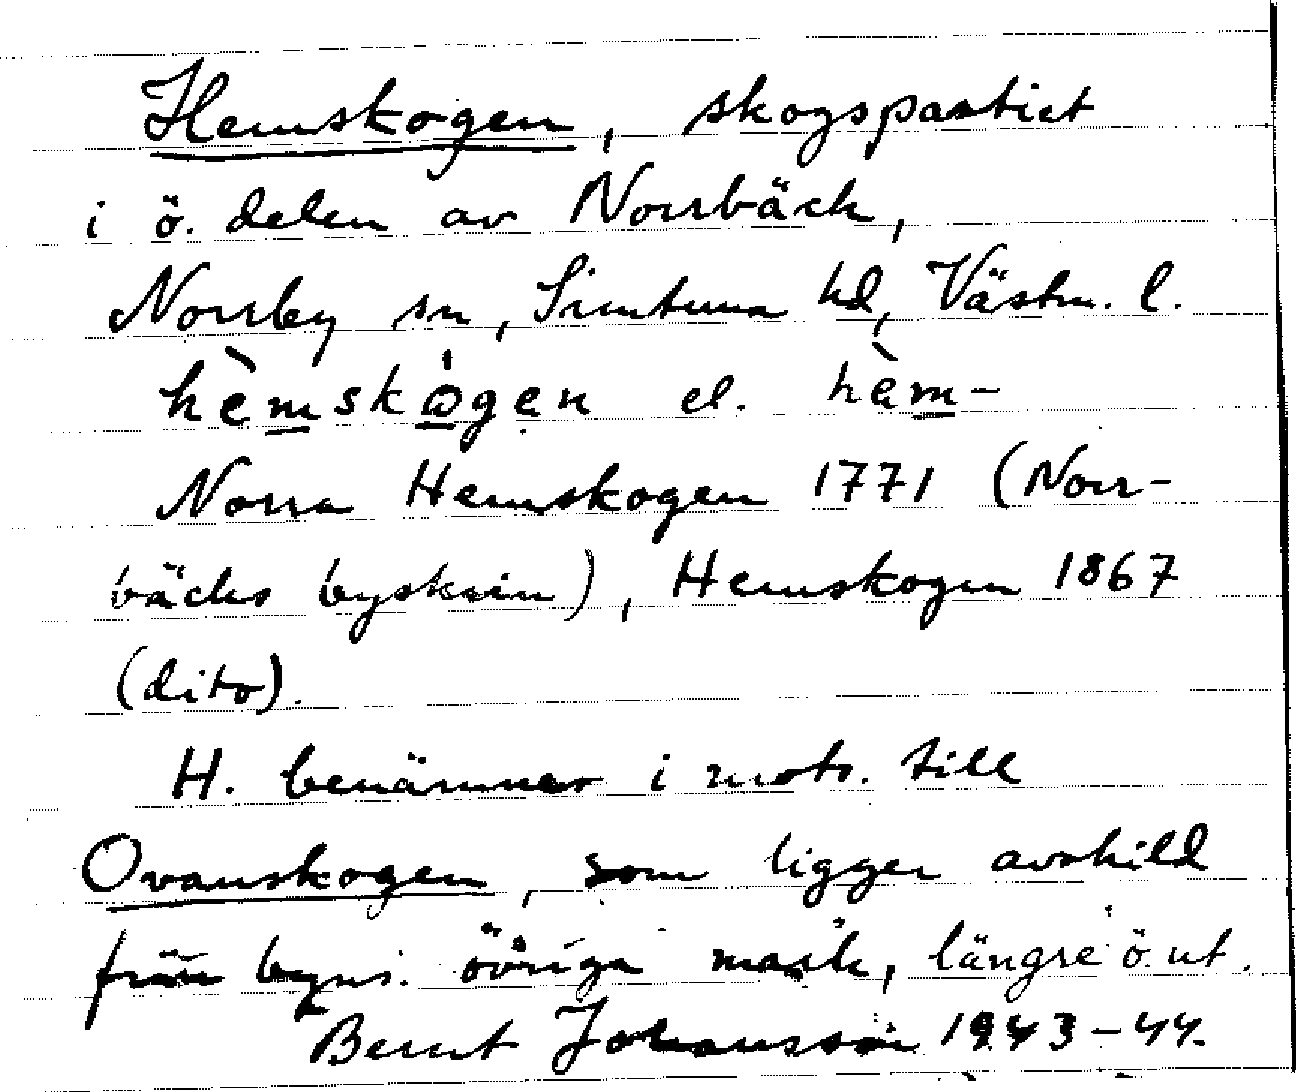 Hemskogen, skogspartiet
i ö. delen av Norrbäck,
Norrby sn, Simtuna hd, Västm. l.
hèmskògen el. hèm-
Norra Hemskogen 1771 (Norr-
bäcks byskrin), Hemskogen 1867
(dito).
H. benämnes i mots. till
Ovanskogen, som ligger avskild
från byns. övriga mark, längre ö. ut.
Bernt Johansson 1943-44.